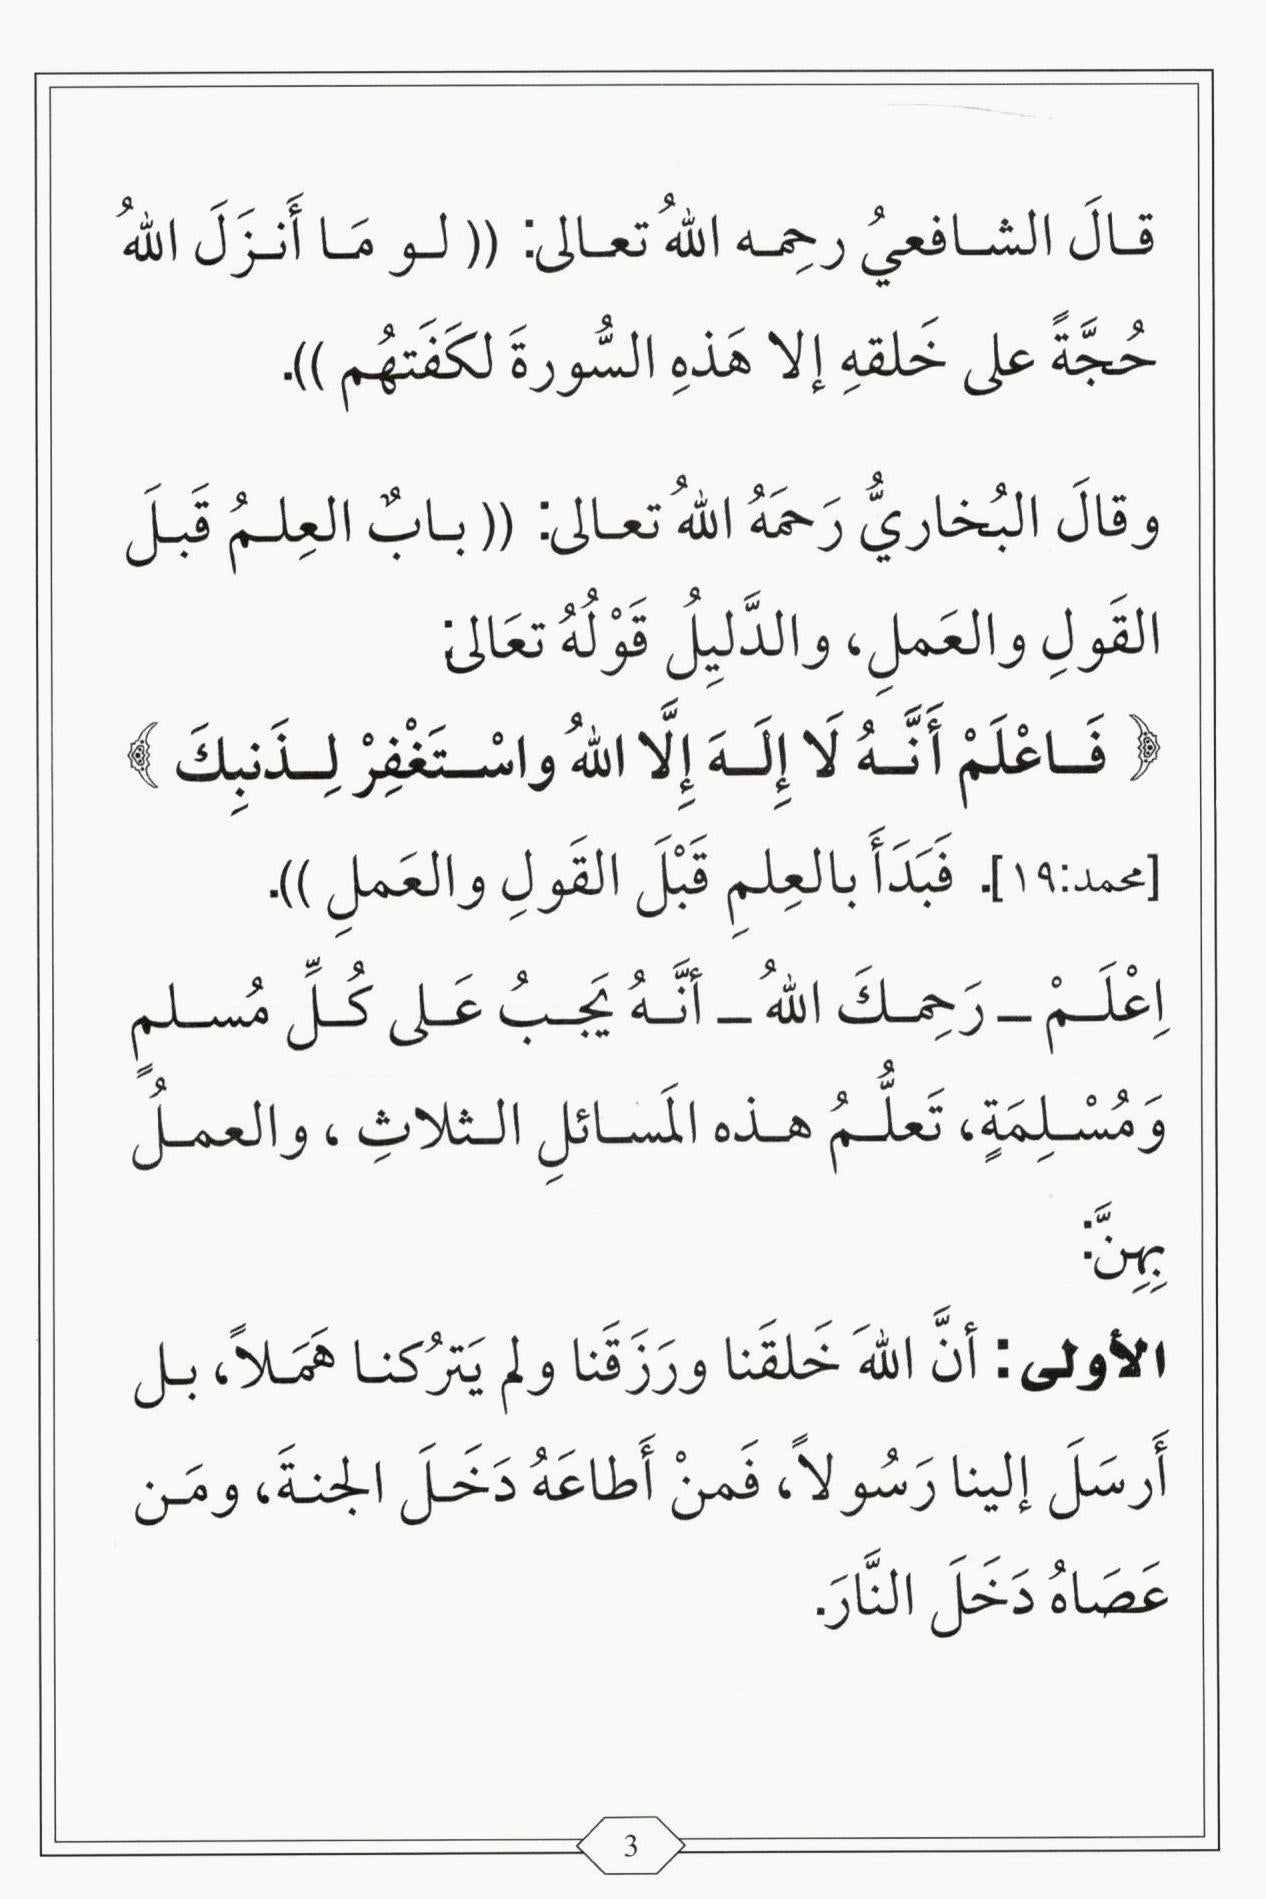 قالَ الشافعيُ رحِمه اللهُ تعالى: (( لو مَا أَنزَلَ اللهُ
حُجَّةً على خَلقهِ إلا هَذهِ السُّورةَ لكَفَتهُم )).
وقالَ البُخاريُّ رَحمَهُ اللهُ تعالى: (( بابٌ العِلمُ قَبلَ
القَولِ والعَملِ، والدَّليِلُ قَوْلُهُ تعَالى:
﴿ فَاعْلَمْ أَنَّهُ لَا إِلَهَ إِلَّا اللهُ واسْتَغْفِرْ لِذَنبِكَ ﴾
[محمد:١٩]. فَبَدَأَ بالعِلمِ قَبْلَ القَولِ والعَملِ )).
اِعْلَمْ – رَحِمكَ اللهُ – أنَّهُ يَجبُ عَلى كُلِّ مُسلمٍ
وَمُسْلِمَةٍ، تَعلُّمُ هذه المَسائلِ الثلاثِ ، والعملُ
بِهِنَّ:
الأولى: أنَّ اللهَ خَلقَنا ورَزَقَنا ولم يَترُكنا هَمَلاً، بل
أَرسَلَ إلينا رَسُولاً، فَمنْ أَطاعَهُ دَخَلَ الجنةَ، ومَن
عَصَاهُ دَخَلَ النَّارَ.
3